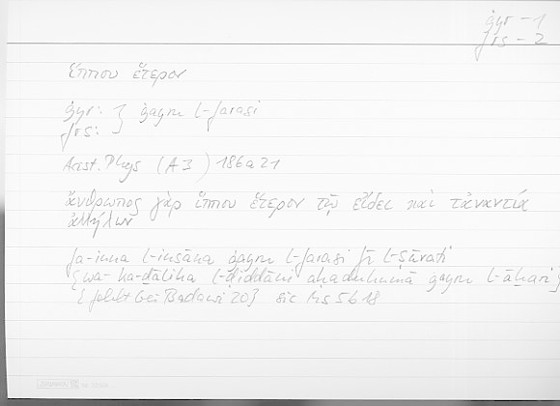 ġyr – 1
frs – 2
ἵππου ἕτερον
ġyr: } ġayru l-farasi
frs:
Arist. Phys (A3) 186a21
ἄνθρωπος γὰρ ἵππου ἕτερον τῷ εἴδει καὶ τἀναντία
ἀλλήλων
fa-inna l-insāna ġayru l-farasi fī l-ṣūrati
{wa-ka-ḏālika l-ḍiddāni aḥaduhumā ġayru l-āḫari}
{ fehlt bei Badawi 20} sic Ms 56 18